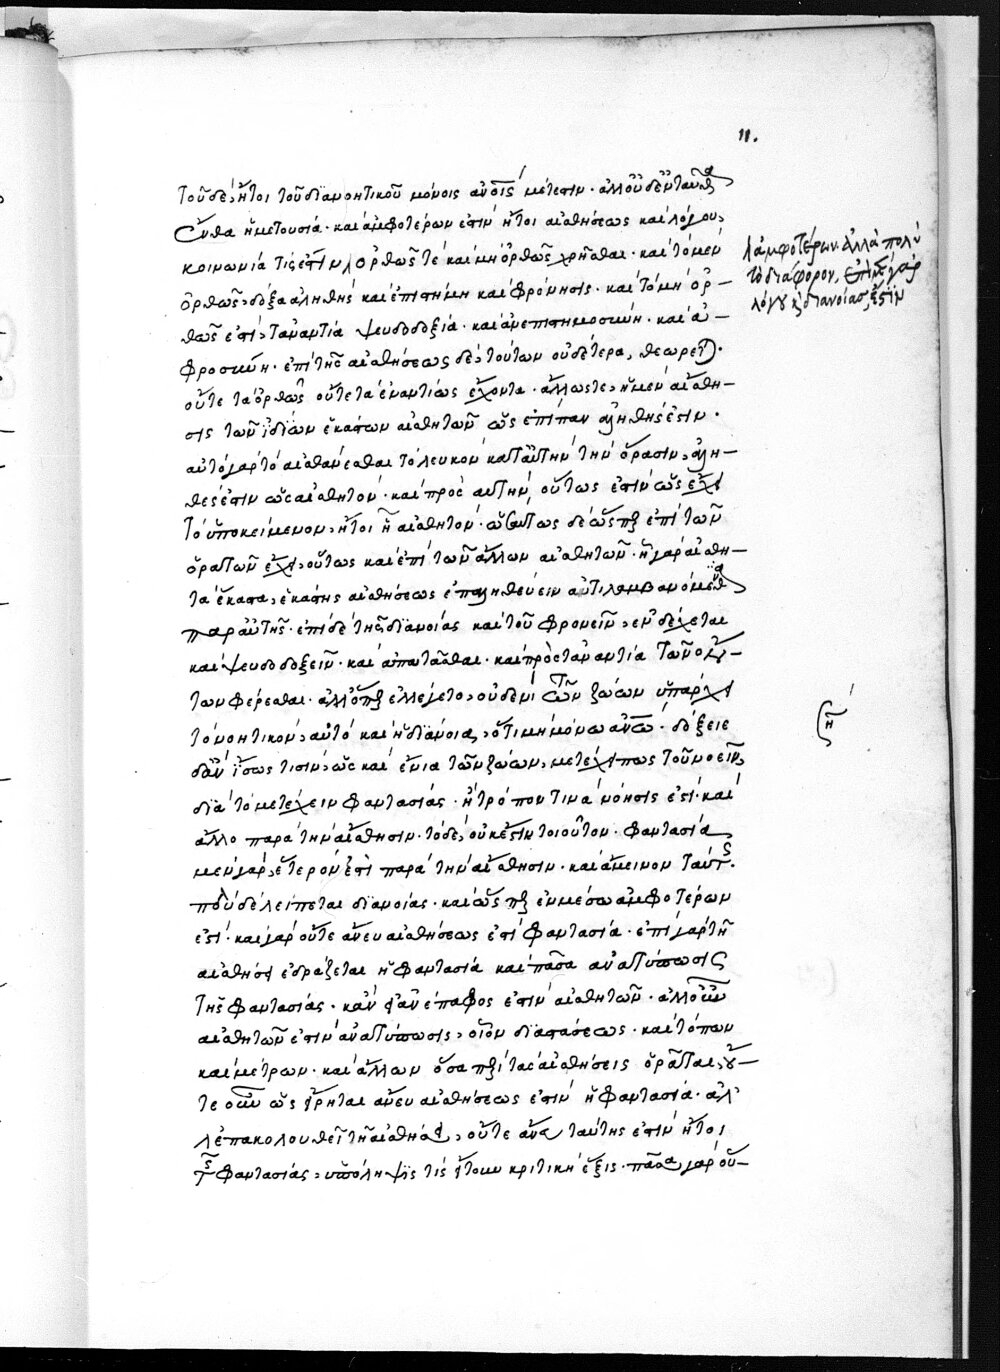 11.
τοῦ δὲ, ἤτοι τοῦ διανοητικοῦ μόνοις ἀνοις μέτεστιν. ἀλλ' οὐδ' ἐνταῦθα
ἡ μετουσία. καὶ ἀμφοτέρων ἐστὶν ἤτοι αἰσθήσεως καὶ λόγου,
κοινωνία τίς ἐστιν ὀρθῶς τὲ καὶ μὴ ὀρθῶς χρῆσθαι. καὶ τὸ μὲν
ὀρθῶς, δόξα ἀληθὴς καὶ ἐπιστήμη καὶ φρόνησις. καὶ τὸ μὴ ὀρ-
θῶς ἐστὶ, τἀναντία ψευδοδοξία. καὶ ἀνεπιστημοσύνη. καὶ ἀ-
φροσύνη. ἐπὶ τῆς αἰσθήσεως δὲ, τούτων οὐδέτερα, θεωρεῖται.
οὔτε τὰ ὀρθῶς οὔτε τὰ ἐναντίως ἔχοντα. ἄλλως τε, ἡ μὲν αἴσθη-
σις τῶν ἰδίων ἑκάστων αἰσθητῶν ὡς ἐπίπαν ἀληθής ἐστιν.
αὐτὸ γὰρ τὸ αἰσθάνεσθαι τὸ λευκὸν κατ' αὐτὴν τὴν ὅρασιν, ἀλη-
θές ἐστιν ὡς αἰσθητόν. καὶ πρὸς αὐτὴν, οὕτως ἐστὶν ὡς ἔχει
τὸ ὑποκείμενον, ἤτοι ἢ αἰσθητόν. ὡσαύτως δὲ ὥσπερ ἐπὶ τῶν
ὁρατῶν ἔχει, οὕτως καὶ ἐπὶ τῶν ἄλλων αἰσθητῶν. ἢ γὰρ αἰσθη-
τὰ ἕκαστα, ἑκάστης αἰσθήσεως ἐπαληθεύειν ἀντιλαμβανόμεθα
παρ' αὐτῆς. ἐπὶ δὲ τῆς διανοίας καὶ τοῦ φρονεῖν, ἐνδέχεται
καὶ ψευδοδοξεῖν. καὶ ἀπατᾶσθαι. καὶ πρὸς τἀναντία τῶν ὄν-
των φέρεσθαι. ἀλλ' ὅπερ ἐλέγετο, οὐδενὶ τῶν ζώων ὑπάρχει
τὸ νοητικόν, αὐτὸ καὶ ἡ διάνοια, ὅτι μὴ μόνω ἀνω. δόξειε
δ' ἂν ἴσως τισὶν, ὡς καὶ ἔνια τῶν ζώων, μετέχει πως τοῦ νοεῖν,
διὰ τὸ μετέχειν φαντασίας. ἢ τρόπον τινα νόησις ἐστὶ. καὶ
ἄλλο παρὰ τὴν αἴσθησιν. τὸ δὲ, οὐκ ἔστιν τοιοῦτον. φαντασία
μὲν γὰρ, ἕτερόν ἐστι παρὰ τὴν αἴσθησιν. καὶ ἄμεινον ταύτης.
πολὺ δὲ λείπεται διανοίας. καὶ ὥσπερ ἐν μέσω ἀμφοτέρων
ἐστί. καὶ γὰρ οὔτε ἄνευ αἰσθήσεως ἐστὶ φαντασία. ἐπὶ γὰρ τῇ
αἰσθήσει ἑδράζεται ἡ φαντασία καὶ πᾶσα ἀνατύπωσις
τῆς φαντασίας. κἀν ἐπαφος ἐστὶν αἰσθητῶν. ἀλλ' οὖν
αἰσθητῶν ἐστὶν ἀνατύπωσις, οἷον διαστάσεως. καὶ τόπων
καὶ μέτρων. καὶ ἄλλων ὅσα περὶ τὰς αἰσθήσεις ὁρᾶται, οὔ-
τε οὖν ὡς εἴρηται ἄνευ αἰσθήσεως ἐστὶν ἡ φαντασία. ἀλ-
λ' ἐπακολουθεῖ τῇ αἰσθήσει, οὔτε ἄνευ ταύτης ἐστὶν ἤτοι
τῆς φαντασίας, ὑπόληψίς τις ἤτοι κριτικὴ ἕξις. πᾶσα γὰρ οὖ-
ἀμφοτέρων. ἀλλὰ πολὺ
τὸ διάφορον, ἐπὶ μὲν γὰρ
λόγου κ διανοίας ἐστὶν
ἢ